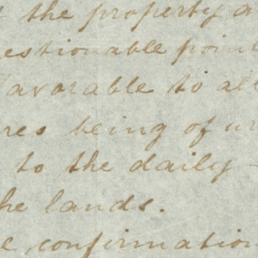 the property a
estionable poin
favorable to al
res being of un
to the daily
he lands.
e, confirmation